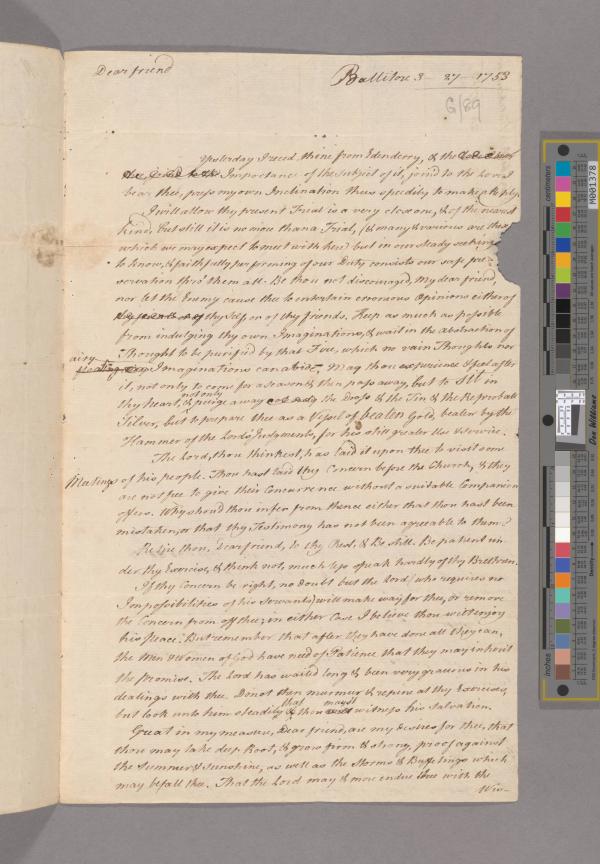 Dear friend
Ballitore 3 - 27 - 1753
6/89
Yesterday I rec'd thine from Edenderry, & the
Importance of the Subject of it, join'd to the Love I
bear thee, press my own Inclination thus speedily to make a Reply.
I will allow thy present Trial is a very close one, & of the nearest
kind, but still it is no more than a Trial, (& many & various are those
which we may expect to meet with here) but in our steady seeking
to know, & faithfully performing of our Duty, consists our safe pre-
servation thro' them all. Be thou not discouraged, My dear friend,
nor let the Enemy cause thee to entertain erronious Opinions either of
thy self or of thy friends. Keep as much as possible
from indulging thy own Imaginations, & wait in the abstraction of
Thought to be purified by that Fire, which no vain Thoughts nor
airy Imaginations can abide, Mayst thou experience & feel after
it, not only to come for a season & then pass away, but to Sit in
thy heart, & not only purge away the Dross & the Tin & the Reprobate
Silver, but to prepare thee as a Vessel of beaten Gold, beaten by the
Hammer of the Lord's Judgments, for his still greater Use & Service.
The Lord, thou thinkest, has laid it upon thee to visit some
Meetings of his people. Thou hast laid thy Concern before the Church, & they
are not free to give their Concurrence without a suitable Companion
offers. Why should thou infer from thence either that thou hast been
mistaken, or that thy Testimony has not been agreeable to them?
Retire thou, Dear friend, to thy Rest, & Be still. Be patient un-
der thy Exercise, & think not, much less speak hardly of thy Brethren.
If thy Concern be right, no doubt but the Lord (who requires no
Impossibilities of his Servants) will make way for thee, or remove
the Concern from off thee; in either Case I believe thou wilt enjoy
his peace. But remember that after they have done all they can,
the Men & Women of God have need of Patience that they may inherit
the Promise. The Lord has waited long & been very gracious in his
dealings with thee. Do not then murmur & repine at thy Exercises,
but look unto him steadily that thou mayst witness his Salvation.
Great in my measure, Dear friend, are my desires for thee, that
thou may take deep Root, & grow firm & strong, proof against
the Summer's Sunshine, as well as the Storms & Buffetings which
may befall thee. That the Lord may & more endue thee with the
Wis-
centimeters
inches
M001378
Don Williams
Density